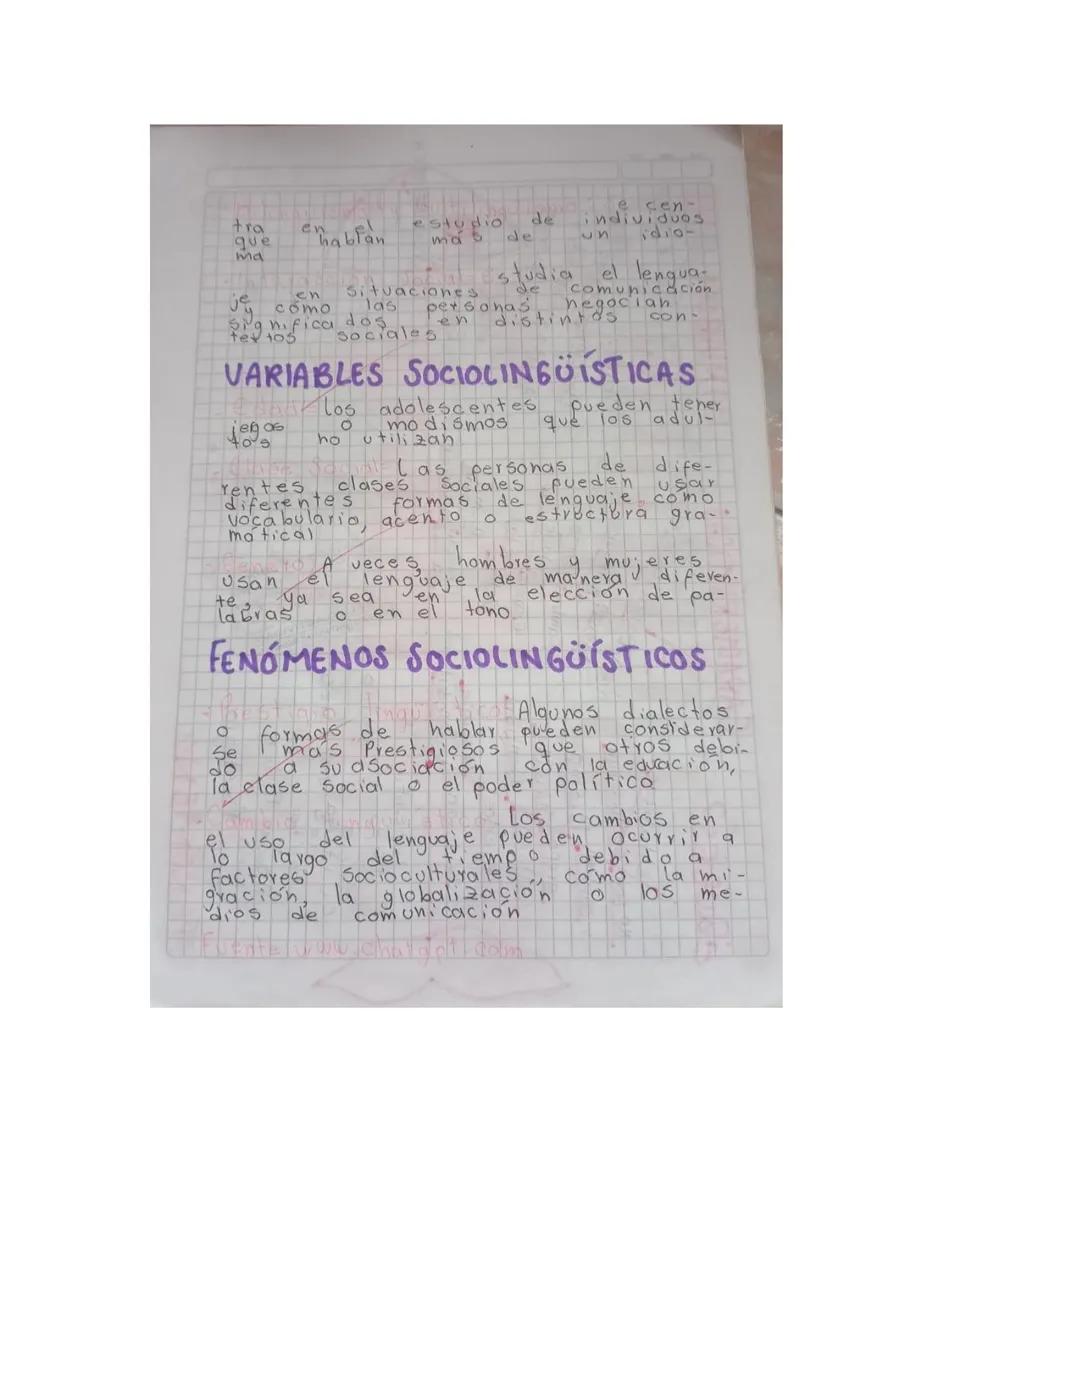 e cen-
tra en el estudio de individuos
que hablan más de un idio-
ma
studia el lengua-
je en situaciones de comunicación
y cómo las personas negocian
significados en distintos con-
textos sociales
VARIABLES SOCIOLINGÜÍSTICAS
- Edad: Los adolescentes pueden tener
jegas o modismos que los adul-
tos no utilizan
- Clase Social: Las personas de dife-
rentes clases sociales pueden usar
diferentes formas de lenguaje como
vocabulario, acento o estructura gra-
matical
- Genero: A veces, hombres y mujeres
usan el lenguaje de manera diferen-
te, ya sea en la elección de pa-
labras o en el tono.
FENÓMENOS SOCIOLINGÜÍSTICOS
- Prestigio lingüístico: Algunos dialectos
o formas de hablar pueden considerar-
se más Prestigiosos que otros debi-
do a su asociación con la educación,
la clase social o el poder político
- Cambio lingüístico: Los cambios en
el uso del lenguaje pueden ocurrir a
lo largo del tiempo debido a
factores socioculturales, como la mi-
gración, la globalización o los me-
dios de comunicación
Fuente www.chatgpt.com